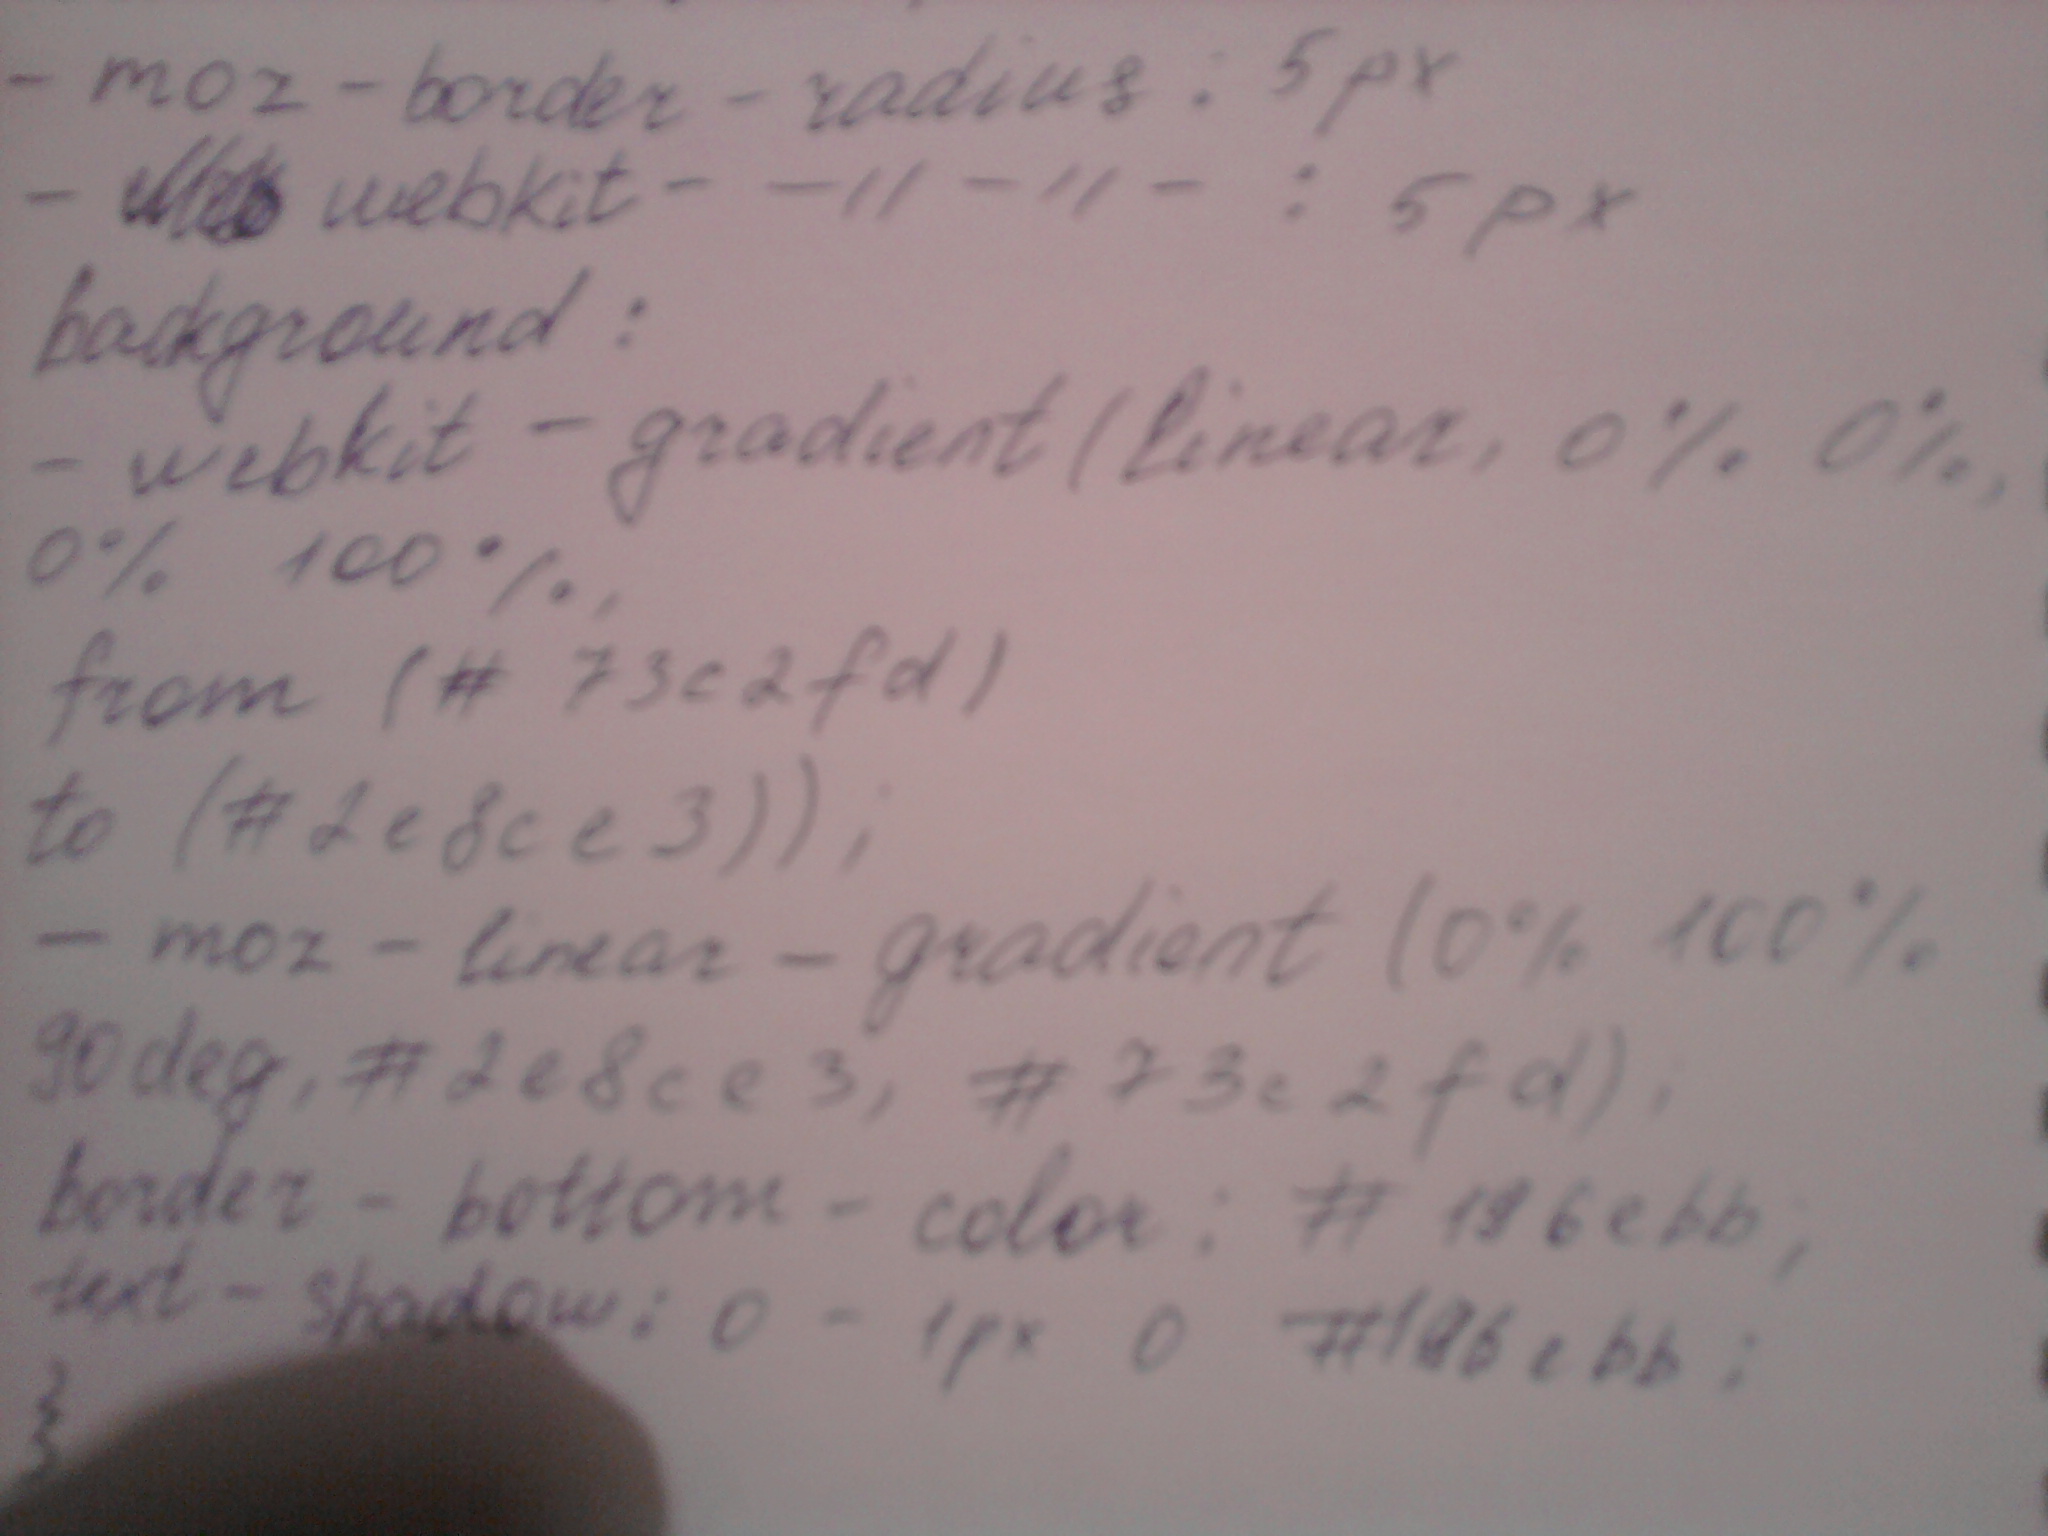 - moz - border - radius : 5px
- webkit - - // - // - : 5px
background :
- webkit - gradient (linear, 0% 0%,
0% 100%,
from (# 73c2fd)
to (#2e8ce3));
- moz - linear - gradient (0% 100%
90deg, #2e8ce3, #73c2fd);
border - bottom - color : # 196ebb;
text - shadow: 0 - 1px 0 #196ebb;
}